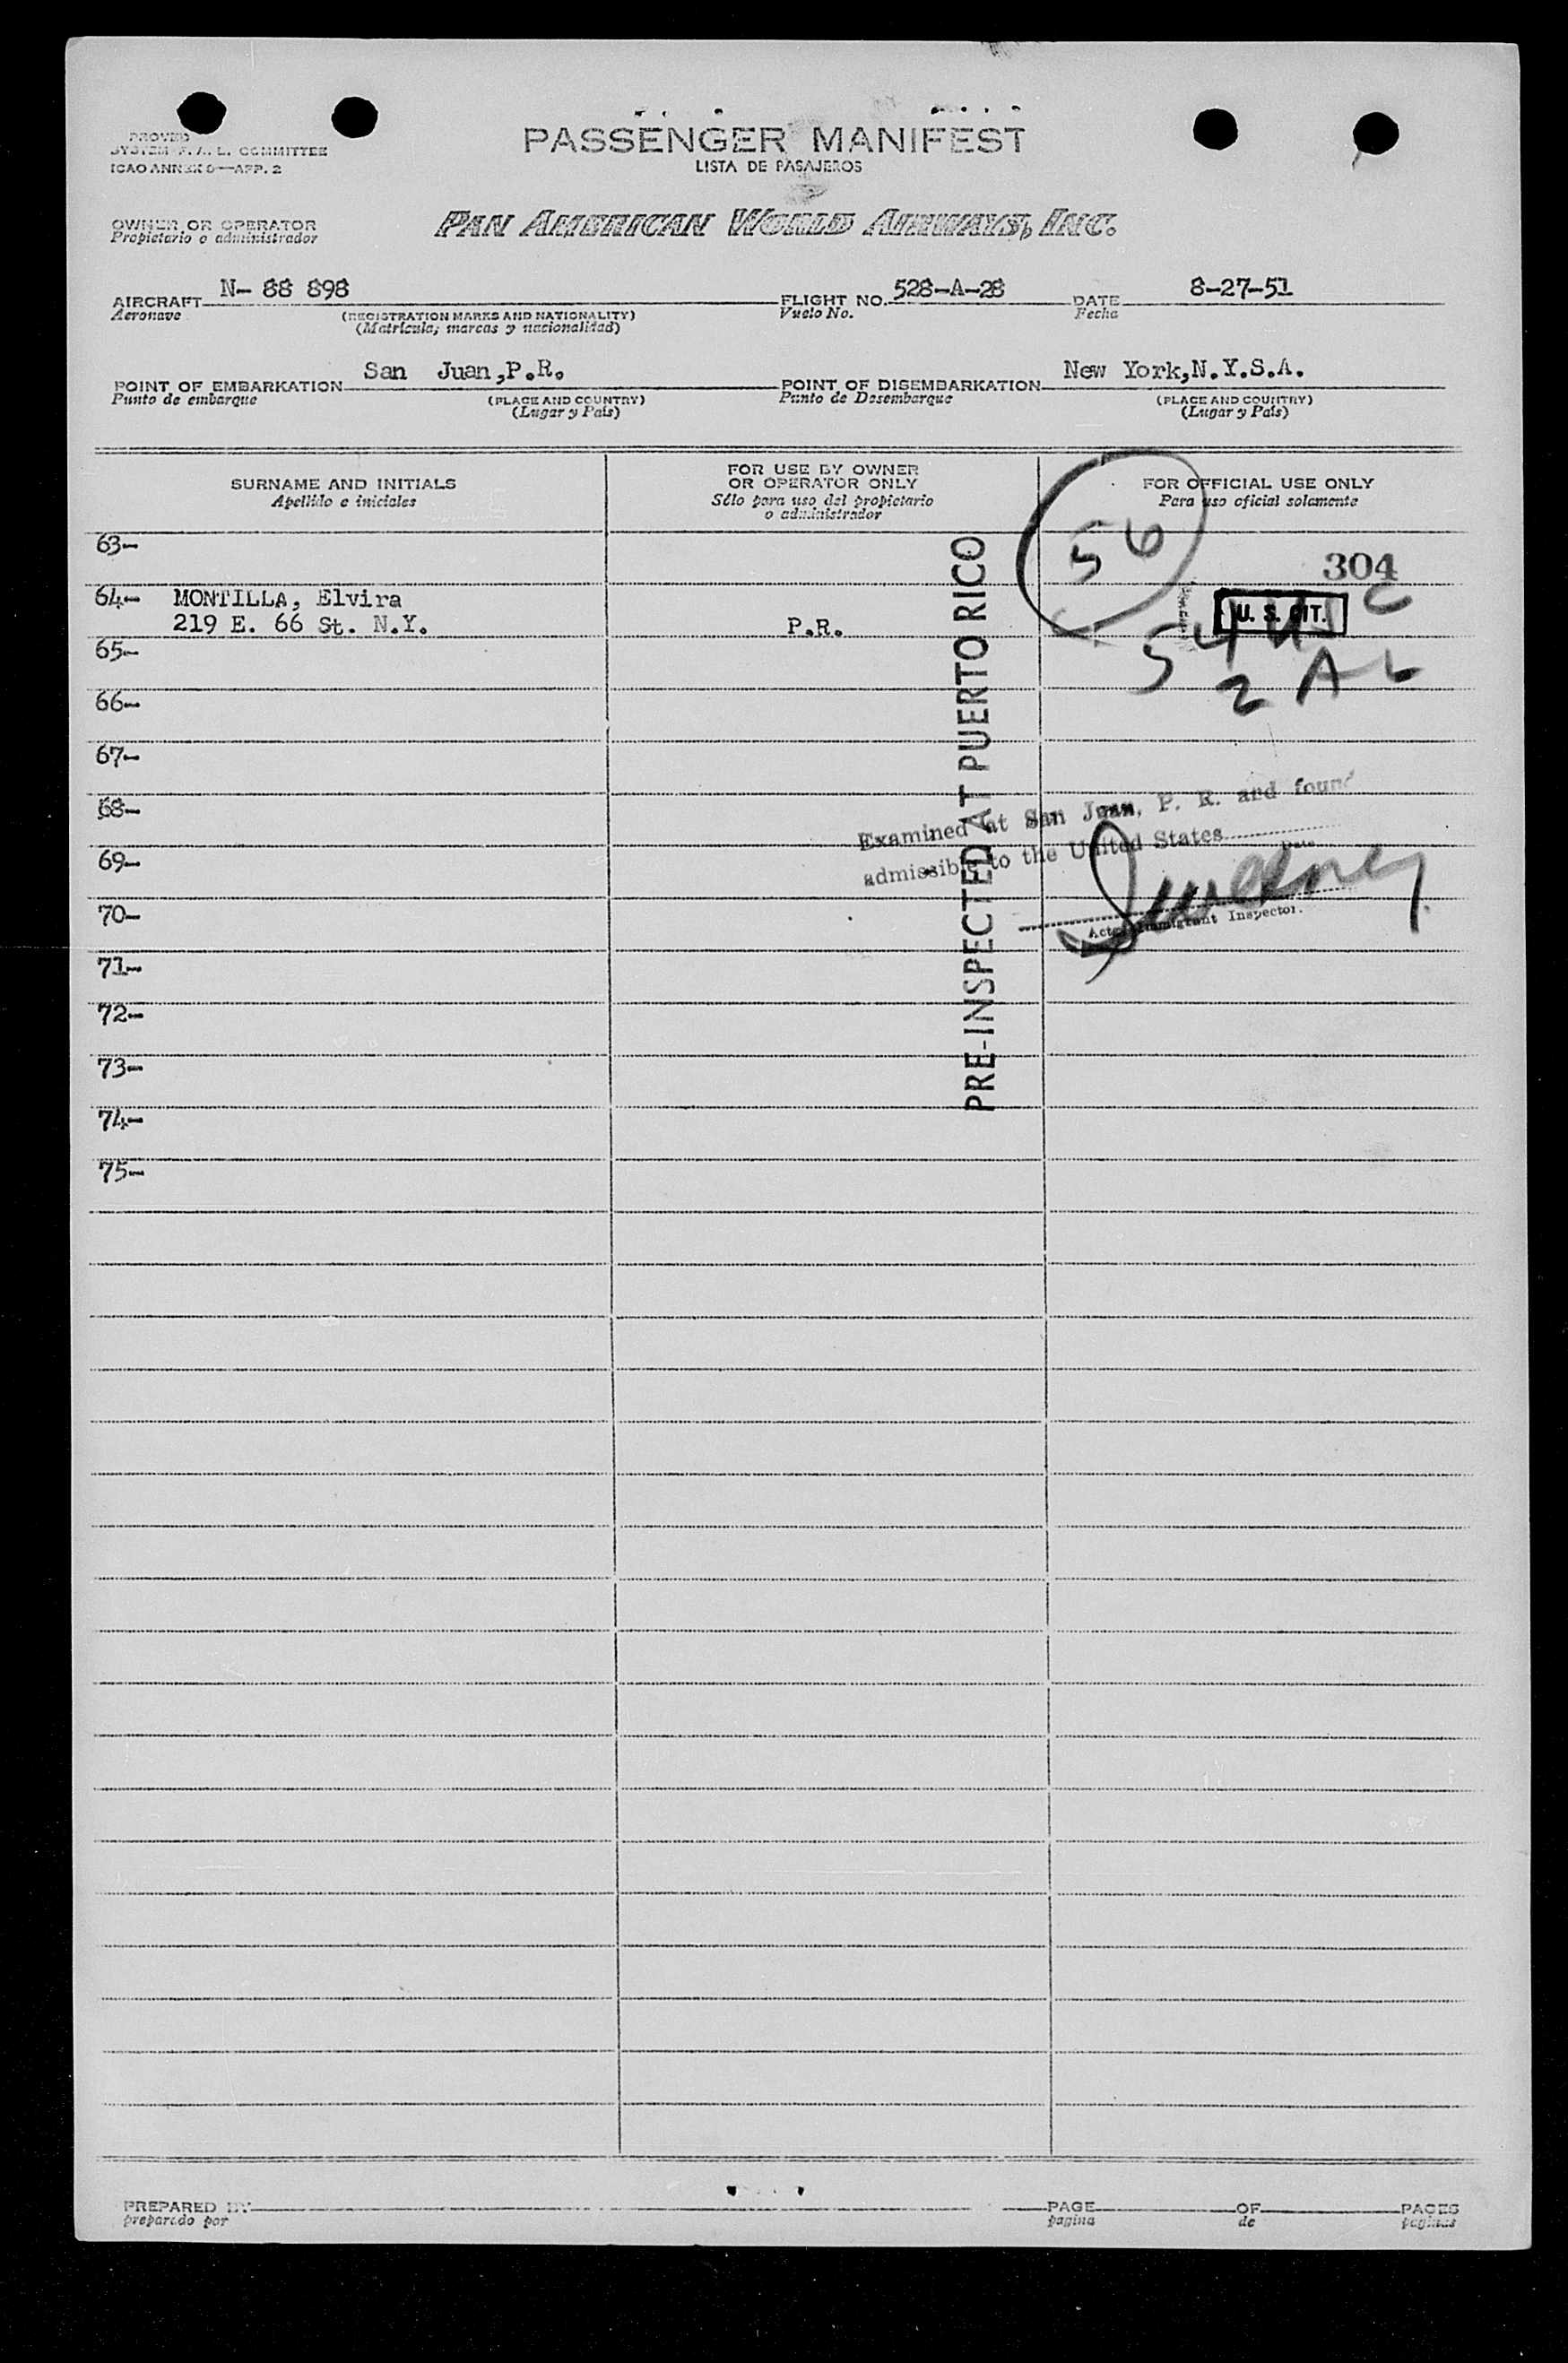 PROVED
SYSTEM F. A. L. COMMITTEE
ICAO ANNEX 9—APP. 2
PASSENGER MANIFEST
LISTA DE PASAJEROS
OWNER OR OPERATOR
Propietario o administrador
PAN AMERICAN WORLD AIRWAYS, INC.
AIRCRAFT N- 88 898
Aeronave
(REGISTRATION MARKS AND NATIONALITY)
(Matrícula; marcas y nacionalidad)
FLIGHT NO. 528-A-28
Vuelo No.
DATE 8-27-51
Fecha
POINT OF EMBARKATION San Juan,P.R.
Punto de embarque
(PLACE AND COUNTRY)
(Lugar y País)
POINT OF DISEMBARKATION New York,N.Y.S.A.
Punto de Desembarque
(PLACE AND COUNTRY)
(Lugar y País)
SURNAME AND INITIALS
Apellido e iniciales
FOR USE BY OWNER
OR OPERATOR ONLY
Sólo para uso del propietario
o administrador
FOR OFFICIAL USE ONLY
Para uso oficial solamente
63-
56
304
64- MONTILLA, Elvira
219 E. 66 St. N.Y.
P.R.
U. S. CIT.
54 US C
2 AL
65-
66-
67-
68-
69-
70-
71-
72-
73-
74-
75-
PRE-INSPECTED AT PUERTO RICO
Examined at San Juan, P. R. and found
admissible to the United States
Date
Sweeney
Acting Immigrant Inspector.
PREPARED BY
preparado por
PAGE
pagina
OF
de
PAGES
paginas